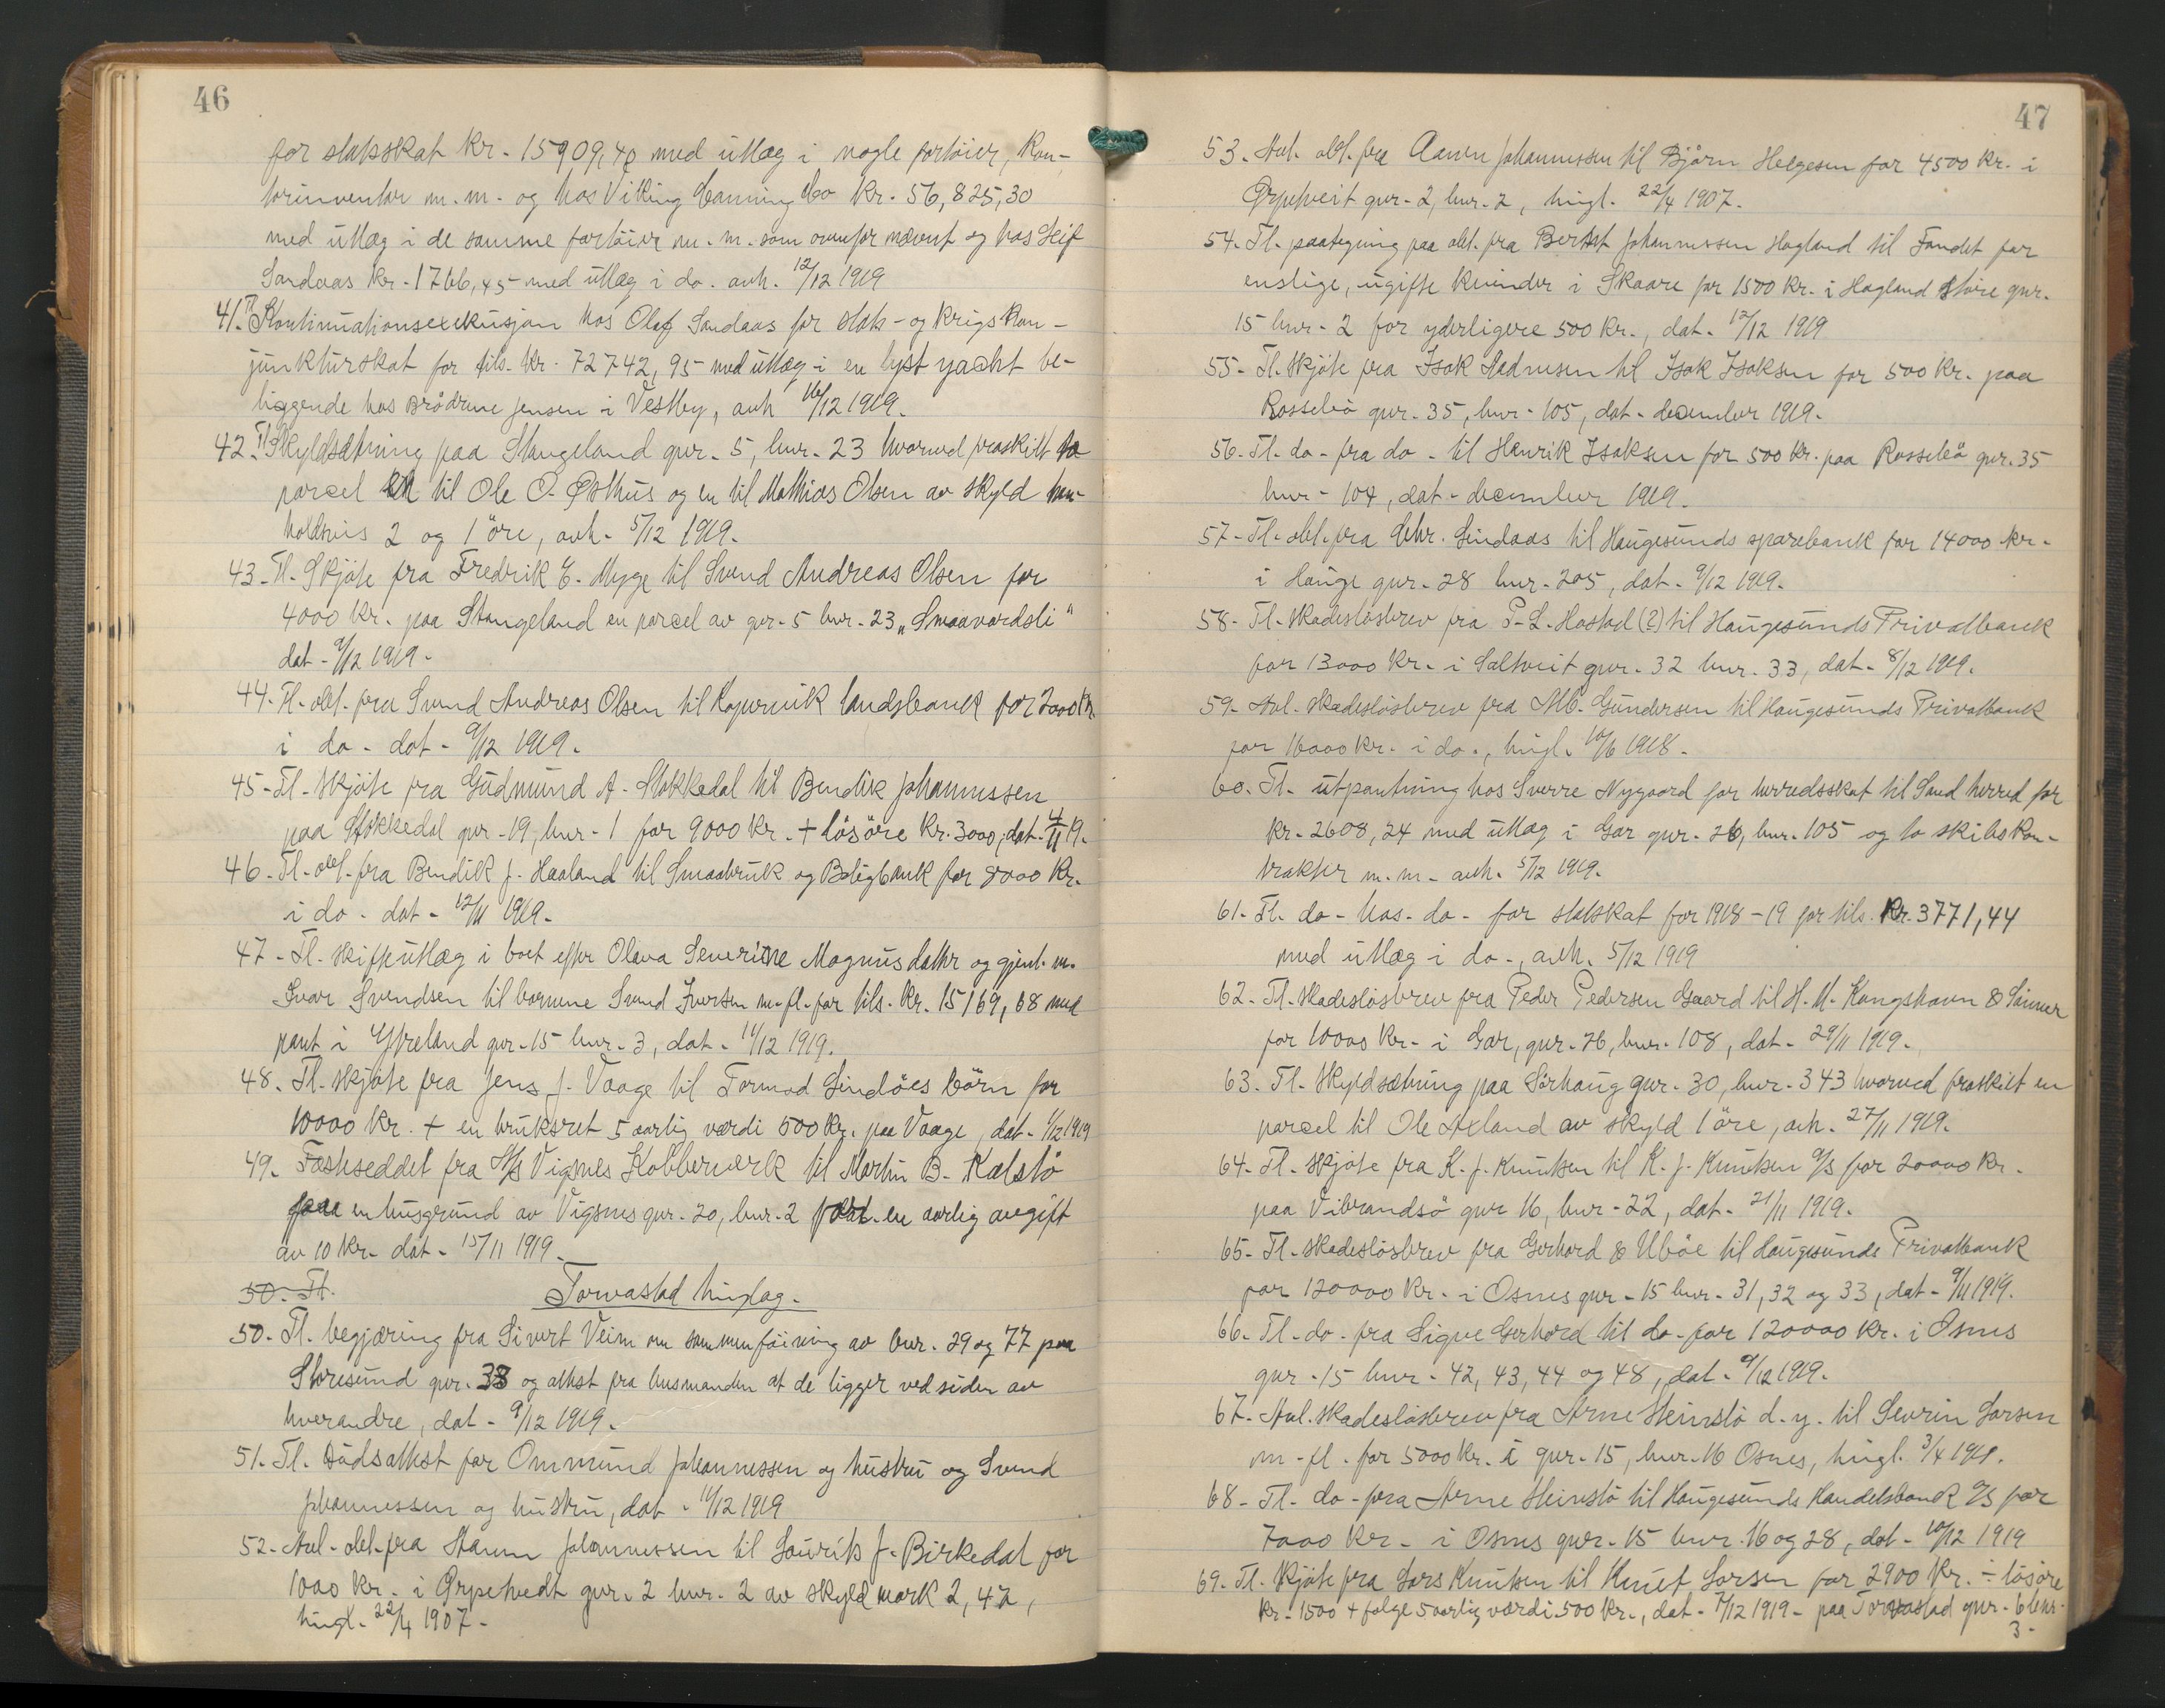 46
for statsskat kr. 15909,40 med utlæg i nogle fartöier, kon-
torinventar m.m. og hos Viking Canning Co kr. 56,825,30
med utlæg i de samme fartöier m.m. som ovenfor nævnt og hos Leif
Sandaas kr. 1766,45 med utlæg i do. avh. 12/12 1919
41. Tl. Kontinuationsexekusjon hos Olaf Sandaas for stats- og krigskon-
junkturskat for tils. kr. 72742,95 med utlæg i en lyst yacht be-
liggende hos Brödrene Jensen i Vestby, avh 16/12 1919.
42. Tl. Skyldsætning paa Stangeland gnr. 5, bnr. 23 hvorved fraskilt to
parcel en til Ole O. Østhus og en til Mathias Olsen av skyld hen-
holdsvis 2 og 1 öre, avh. 5/12 1919.
43. Tl. Skjöte fra Fredrik E. Myge til Svend Andreas Olsen for
4000 kr. paa Stangeland en parcel av gnr. 5 bnr. 23 „Smaavardsli"
dat. 9/12 1919.
44. Tl. obl. fra Svend Andreas Olsen til Kopervik landsbank for 2000 kr.
i do. dat. 9/12 1919.
45. Tl. skjöte fra Gudmund A. Stokkedal til Bendik Johannessen
paa Stokkedal gnr. 19, bnr. 1 for 9000 kr. + lösöre kr. 3000, dat. 4/11 19.
46. Tl. obl. fra Bendik J. Haaland til Smaabruk og Boligbank for 8000 kr.
i do. dat. 12/11 1919.
47. Tl. skifteutlæg i boet efter Olava Severine Magnusdatter og gjenl. m.
Ivar Svendsen til barnene Svend Iversen m.fl. for tils. kr. 15169,68 med
pant i Ytreland gnr. 15 bnr. 3, dat. 11/12 1919.
48. Tl. skjöte fra Jens J. Vaage til Tormod Lindöes börn for
10000 kr. + en bruksret 5 aarlig værdi 500 kr. paa Vaage, dat. 1/12 1919
49. Festeseddel fra A/S Vigsnes Kobberverk til Martin B. Kalstö
paa en husgrund av Vigsnes gnr. 20, bnr. 2 en aarlig avgift
av 10 kr. dat. 15/11 1919.
50. Tl. Torvastad tinglag.
50. Tl. begjæring fra Sivert Veim om sammenföining av bnr. 29 og 77 paa
Storesund gnr. 33 og attest fra lensmanden at de ligger ved siden av
hverandre, dat. 9/12 1919.
51. Tl. Dödsattest for Ommund Johannessen og hustru og Svend
Johannessen og hustru, dat. 11/12 1919
52. Avl. obl. fra Hanna Johannessen til Laurits J. Birkedal for
1000 kr. i Grypetvedt gnr. 2 bnr. 2 av skyld mark 2,42,
tingl. 22/4 1907.
47
53. Avl. obl. fra Aanen Johannessen til Björn Helgesen for 4500 kr. i
Grypetveit gnr. 2, bnr. 2, tingl. 22/4 1907.
54. Tl. paategning paa obl. fra Johannessen Hagland til Fondet for
enslige, ugifte kvinder i Skaare for 1500 kr. i Hagland store gnr.
15 bnr. 2 for yderligere 500 kr., dat. 12/12 1919
55. Tl. Skjöte fra Isak Aadnesen til Isak Isaksen for 500 kr. paa
Rossebö gnr. 35, bnr. 105, dat. december 1919.
56. Tl. do. fra do. til Henrik Isaksen for 500 kr. paa Rossebö gnr. 35
bnr. 104, dat. december 1919.
57. Tl. obl. fra Chr. Lindaas til Haugesunds sparebank for 14000 kr.
i Hauge gnr. 28 bnr. 205, dat. 9/12 1919.
58. Tl. skadeslösbrev fra P. L. Hastad (?) til Haugesunds Privatbank
for 13000 kr. i Saltveit gnr. 32 bnr. 33, dat. 8/12 1919.
59. Avl. skadeslösbrev fra M. Gundersen til Haugesunds Privatbank
for 16000 kr. i do., tingl. 10/6 1918.
60. Tl. utpantning hos Sverre Nygaard for herredsskat til Sand herred for
kr. 2608,24 med utlæg i Gar gnr. 26, bnr. 105 og to skibskon-
trakter m.m. avh. 5/12 1919.
61. Tl. do. hos. do. for statskat for 1918-19 for tils. kr. 3771,44
med utlæg i do., avh. 5/12 1919
62. Tl. skadeslösbrev fra Peder Pedersen Gaard til H. M. Kongshavn & Sönner
for 10000 kr. i Gar, gnr. 26, bnr. 108, dat. 29/11 1919.
63. Tl. Skyldsætning paa Sörhaug gnr. 30, bnr. 343 hvorved fraskilt en
parcel til Ole Axland av skyld 1 öre, avh. 27/11 1919.
64. Tl. skjöte fra K. J. Knutsen til K. J. Knutsen A/S for 20000 kr.
paa Vibrandsö gnr 16, bnr. 22, dat. 21/11 1919.
65. Tl. skadeslösbrev fra Gerhard & Uböe til Haugesunds Privatbank
for 120000 kr. i Osnes gnr. 15 bnr. 31, 32 og 33, dat. 9/11 1919.
66. Tl. do. fra Sigve Gerhard til do. for 120000 kr. i Osnes
gnr. 15 bnr. 42, 43, 44 og 48, dat. 9/12 1919.
67. Avl. skadeslösbrev fra Arne Steinslö d.y. til Sevrin Larsen
m.fl. for 5000 kr. i gnr. 15, bnr. 16 Osnes, tingl. 3/4 1911.
68. Tl. do. fra Arne Steinslö til Haugesunds Handelsbank A/S for
7000 kr. i Osnes gnr. 15 bnr. 16 og 28, dat. 10/12 1919
69. Tl. skjöte fra Lars Knutsen til Knut Larsen for 2900 kr. ÷ lösöre
kr. 1500 + folge 5 aarlig værdi 500 kr., dat. 7/12 1919 - paa Torvastad gnr. 6 bnr.
3.